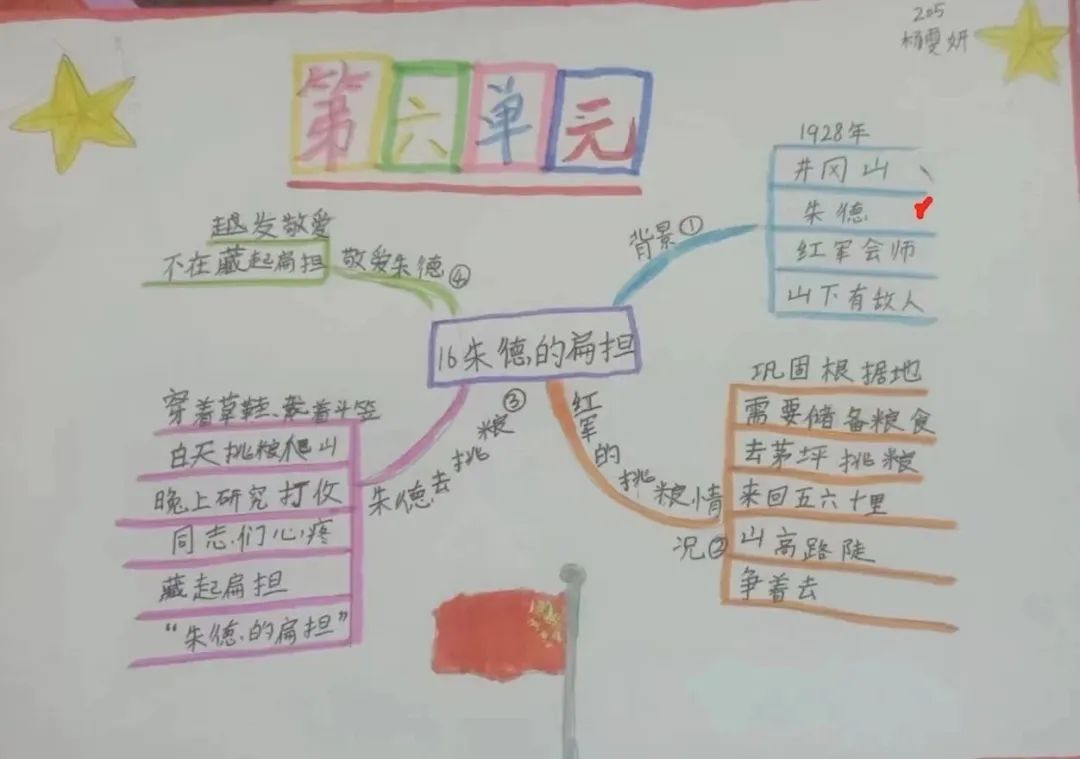 205
杨雯妍
第六单元
16朱德的扁担
背景①
1928年
井冈山
朱德
红军会师
山下有敌人
红军的挑粮情况②
巩固根据地
需要储备粮食
去茅坪挑粮
来回五六十里
山高路陡
争着去
朱德去挑粮③
穿着草鞋、戴着斗笠
白天挑粮爬山
晚上研究打仗
同志们心疼
藏起扁担
“朱德的扁担”
敬爱朱德④
越发敬爱
不在藏起扁担